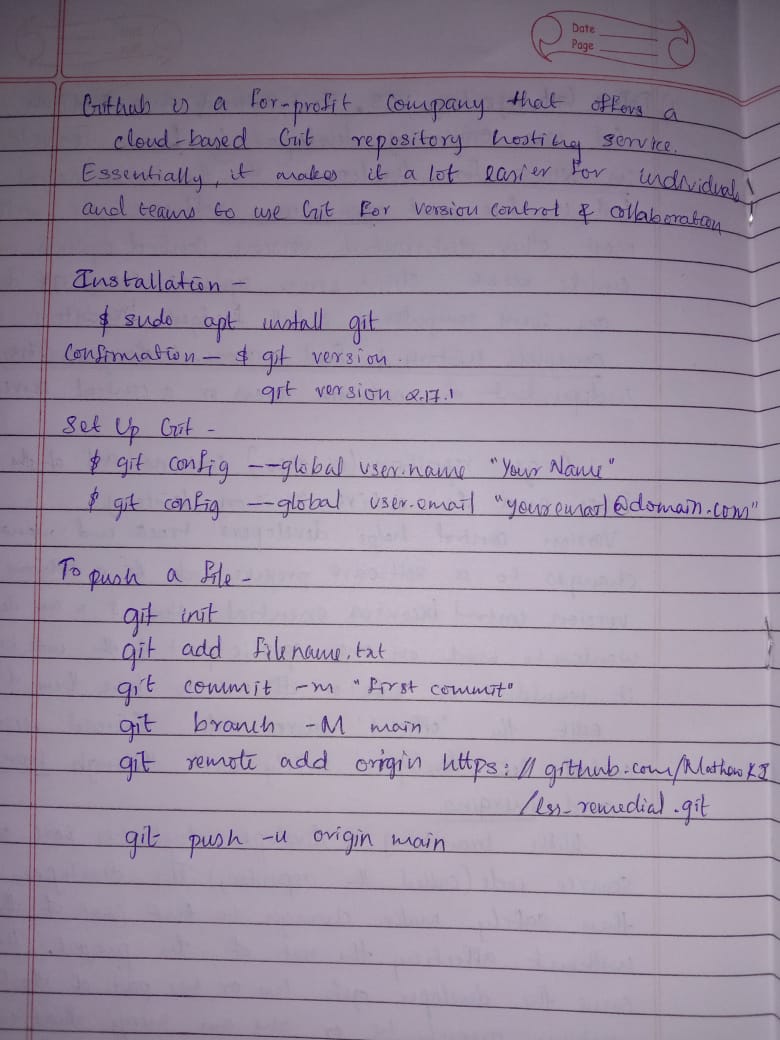 Date
Page
Github is a for-profit company that offers a
cloud-based Git repository hosting service.
Essentially, it makes it a lot easier for individuals
and teams to use Git for version control & collaboration
Installation -
$ sudo apt install git
Confirmation - $ git version.
git version 2.17.1
Set Up Git -
$ git config --global user.name "Your Name"
$ git config --global user.email "youremail@domain.com"
To push a file -
git init
git add filename.txt
git commit -m "first commit"
git branch -M main
git remote add origin https://github.com/MathewKJ
/lss_remedial.git
git push -u origin main